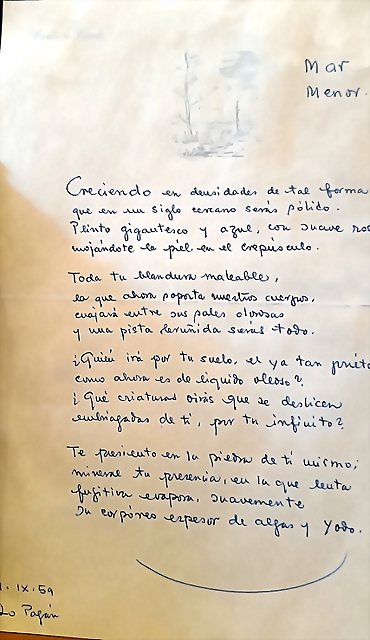 Mar
Menor.
Creciendo en densidades de tal forma
que en un siglo cercano serás sólido.
Plinto gigantesco y azul, con suave
mojándote la piel en el crepúsculo.
Toda tu blandura maleable,
la que ahora soporta nuestros cuerpos,
cuajará entre sus sales olorosas
y una pista bruñida serás todo.
¿Quién irá por tu suelo, el ya tan prieto
como ahora es de líquido oleoso?
¿Qué criaturas oirás que se deslicen
embriagadas de ti, por tu infinito?
Te presiento en la piedra de ti mismo;
mineral tu presencia, en la que lenta
fugitiva evapora, suavemente
su corpóreo espesor de algas y yodo.
IX.59
Lo Pagán